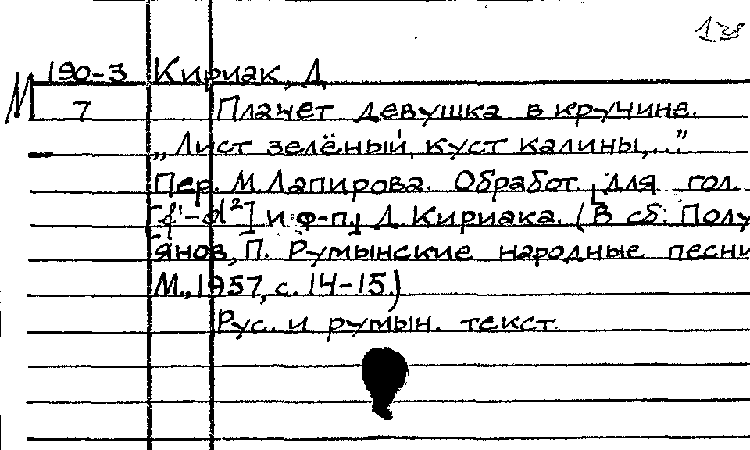 190-3 Кириак, Д
М 7 Плачет девушка в кручине.
„Лист зелёный, куст калины,..."
Пер. М. Лапирова. Обработ. для гол.
[f'-d²] и ф-п. Д. Кириака. (В сб: Полу
янов, П. Румынские народные песни
М., 1957, с. 14-15.)
Рус. и румын. текст.